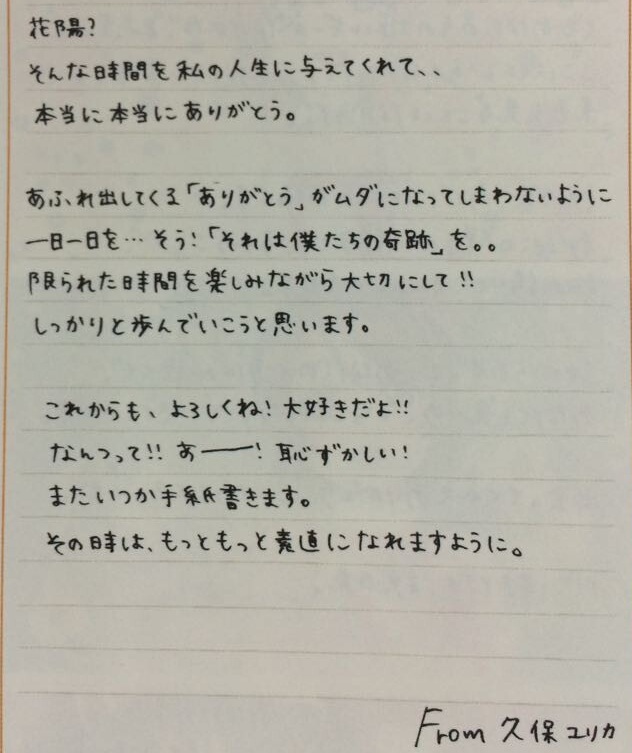 花陽?
そんな時間を私の人生に与えてくれて、、
本当に本当にありがとう。
あふれ出してくる「ありがとう」がムダになってしまわないように
一日一日を…そう!「それは僕たちの奇跡」を。。
限られた時間を楽しみながら大切にして!!
しっかりと歩んでいこうと思います。
これからも、よろしくね!大好きだよ!!
なんつって!!あー!恥ずかしい!
またいつか手紙書きます。
その時は、もっともっと素直になれますように。
From 久保ユリカ